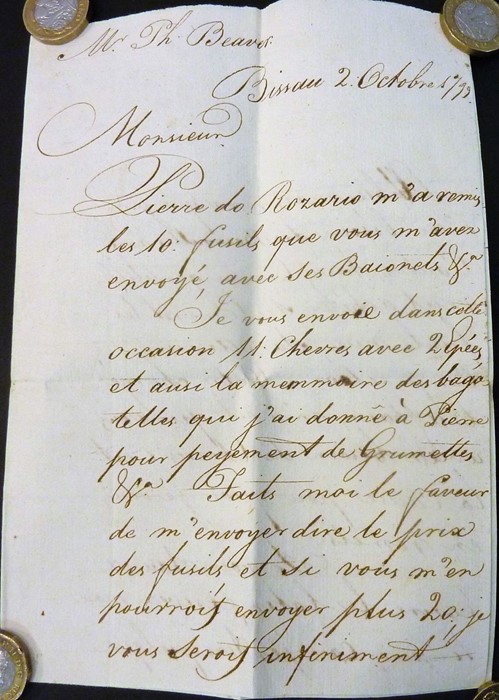 Mr. Ph. Beaver
Bissau 2. Octobre 1793
Monsieur
Pierre do Rozario m'a remis
les 10: fusils que vous m'avez
envoyé avec ses Baionets &a
Je vous envoie dans cette
occasion 11: Chevres avec 2 Epées
et ausi la memmoire des baga
telles qui j'ai donnê à Pierre
pour peyement de Grumettes
&a Faits moi le faveur
de m'envoyer dire le prix
des fusils, et si vous m'en
pourrois envoyer plus 20: je
vous serois infiniment